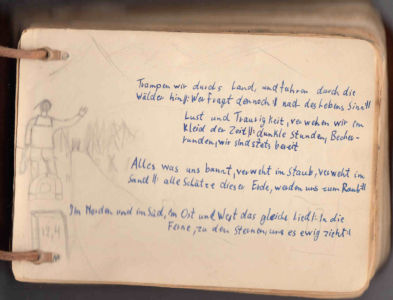 Trampen wir durchs Land, und fahren durch die
Wälder hin :||: Wer fragt dennoch :|| nach des Lebens Sinn :||
Lust und Traurigkeit, verwehen wir im
Kleid der Zeit ||: dunkle Stunden, Becher-
runden, wir sind stets bereit
Alles was uns bannt, verweht im Staub, verweht im
Sand ||: alle Schätze dieser Erde, werden uns zum Raub :||
Im Norden und im Süd, in Ost und West das gleiche Lied ||: In die
Ferne, zu den Sternen, uns es ewig zieht :||